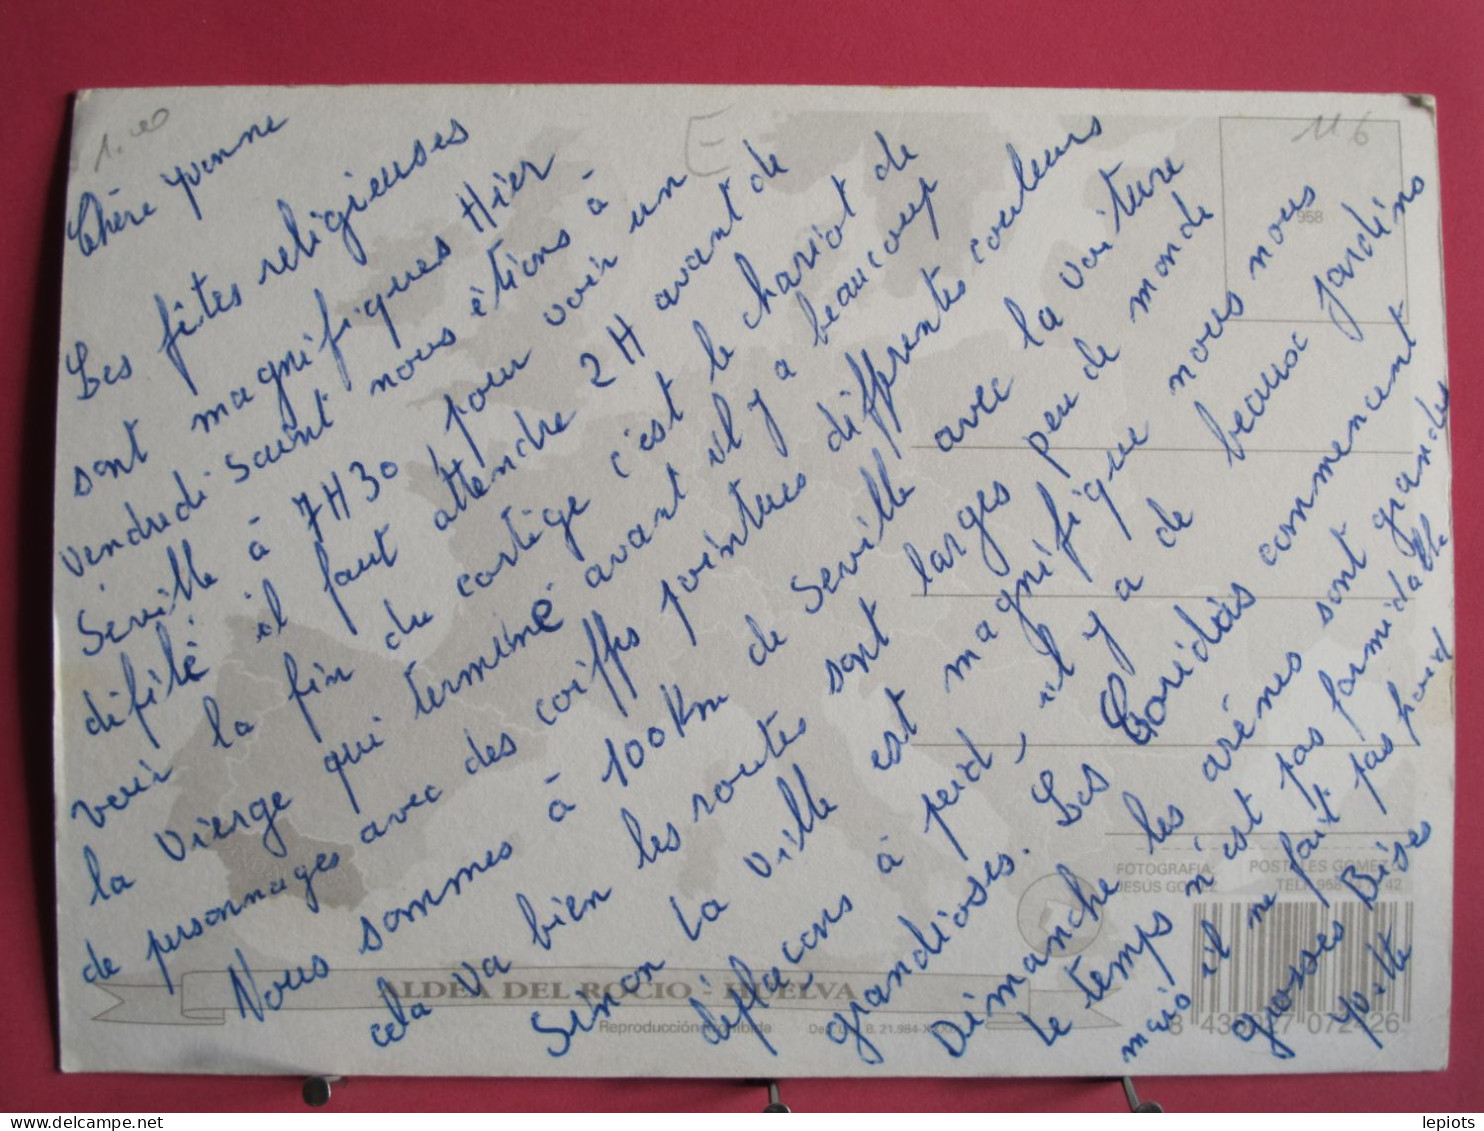 1.00
E
116
Chère Yvonne
Les fêtes religieuses
sont magnifiques Hier
vendredi-saint nous étions à
Séville à 7H30 pour voir un
défilé il faut attendre 2H avant de
voir la fin du cortège c'est le chariot de
la vierge qui terminé avant il y a beaucoup
de personnages avec des coiffes pointues différentes couleurs
Nous sommes à 100Km de Seville avec la voiture
cela va bien les routes sont larges peu de monde
Sinon La ville est magnifique nous nous
déplaçons à pied, il y a de beaux jardins
grandioses. Les Coridas commencent
Dimanche les arénes sont grandes
Le temps n'est pas formidable
mais il ne fait pas froid
grosses Bises
Yvette
958
FOTOGRAFIA:
JESÚS GOMEZ
POSTALES GOMEZ
TELF. 958 42
ALDEA DEL ROCIO - HUELVA
Reproducción prohibida
B. 21.984-XXXX
8 072426
lepiots